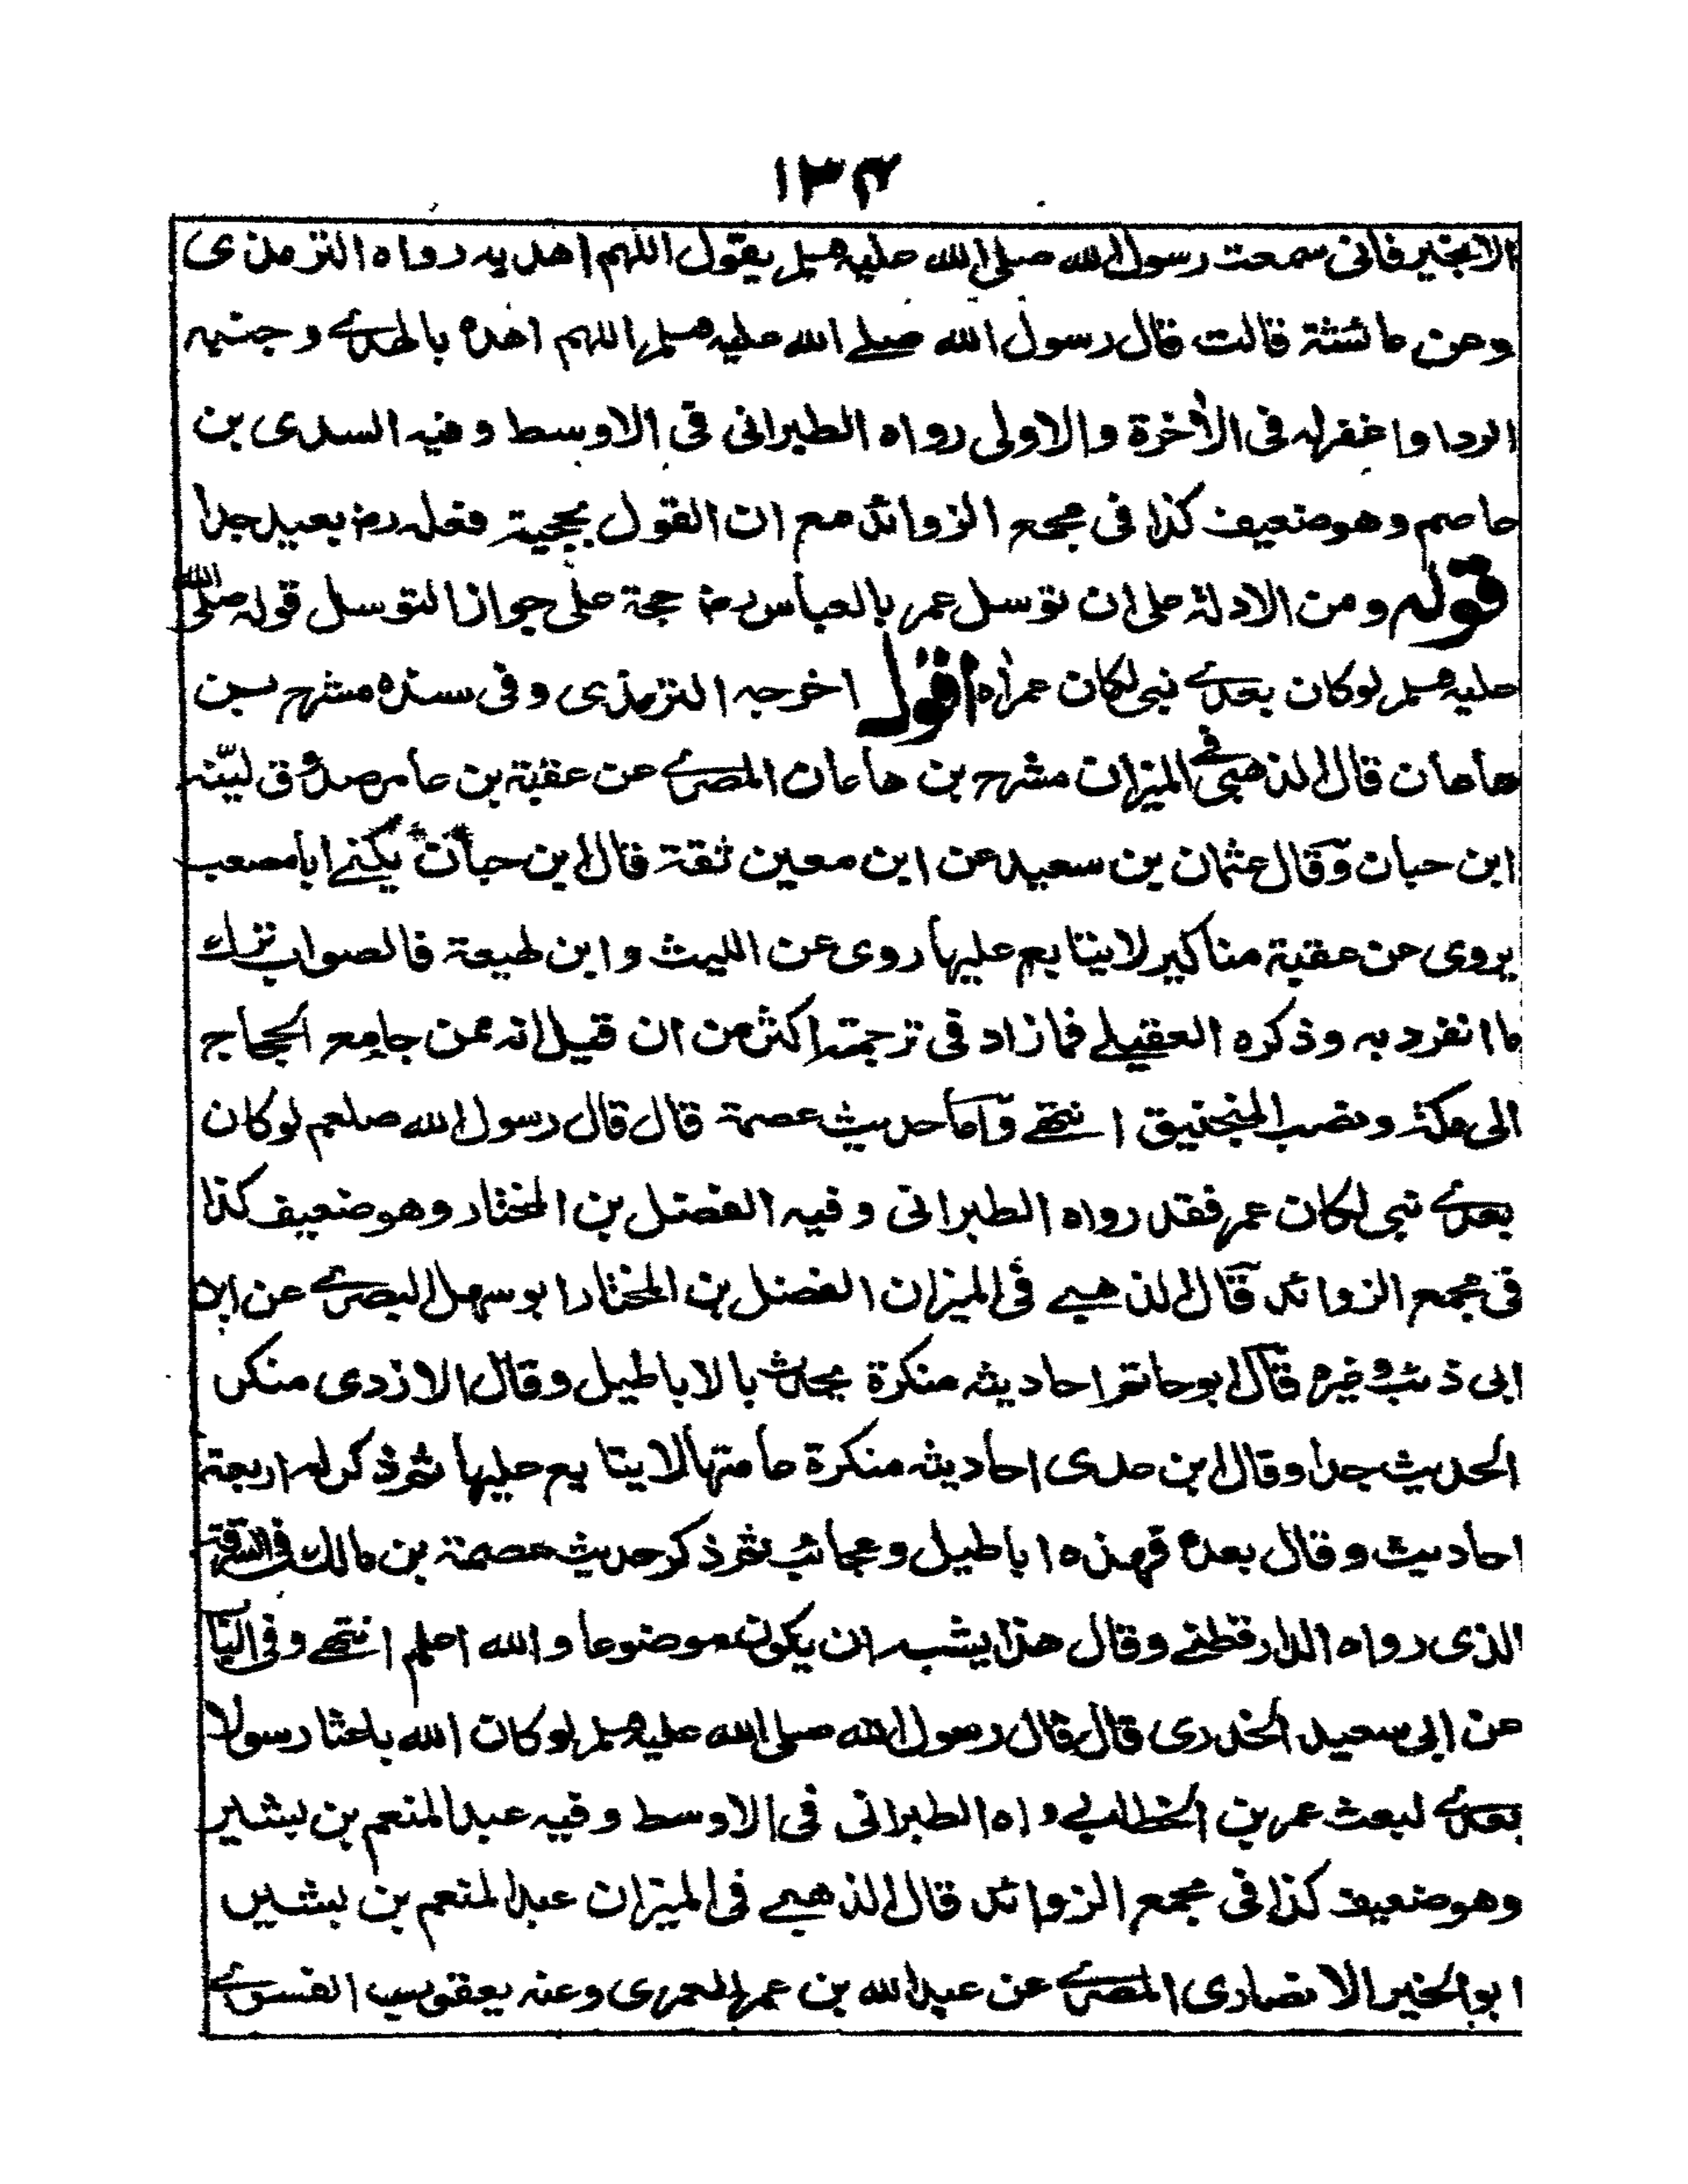 ١٣٤
الا بخير فانى سمعت رسول الله صلى الله عليه وسلم يقول اللهم اهد به رواه الترمذى
وعن عائشة قالت قال رسول الله صلے الله عليه وسلم اللهم اهده بالهدے وجنبه
الردا واغفر له فى الأخرة والاولى رواه الطبرانى فى الاوسط وفيه السدى بن
عاصم وهو ضعيف كذا فى مجمع الزوائد مع ان القول بحجية فعله رض بعيد جدا
قوله ومن الادلة على ان توسل عمر بالعباس رض حجة على جواز التوسل قوله صلى الله
عليه وسلم لو كان بعدے نبى لكان عمر اه اقول اخرجه الترمذى وفى سنده مشرح بن
هاعان قال الذهبى فے الميزان مشرح بن هاعان المصرے عن عقبة بن عامر صدوق لينه
ابن حبان وقال عثمان بن سعيد عن ابن معين ثقة قال ابن حبان يكنے ابا مصعب
يروى عن عقبة مناكير لا يتابع عليها روى عن الليث وابن لهيعة فالصواب ترك
ما انفرد به وذكره العقيلے فما زاد فى ترجمته اكثر من ان قيل انه ممن جا مع الحجاج
الى مكة ونصب المنجنيق انتهے واما حديث عصمة قال قال رسول الله صلعم لو كان
بعدے نبى لكان عمر فقد رواه الطبرانى وفيه الفضل بن المختار وهو ضعيف كذا
فى مجمع الزوائد قال الذهبے فى الميزان الفضل بن المختار ابو سهل البصرے عن ابن
ابى ذئب وغيره قال ابو حاتم احاديثه منكرة يحدث بالاباطيل وقال الازدى منكر
الحديث جدا وقال ابن عدى احاديثه منكرة عامتها لا يتابع عليها ثم ذكر له اربعة
احاديث وقال بعده فهذه اباطيل وعجائب ثم ذكر حديث عصمة بن مالك فى السرقة
الذى رواه الدارقطنے وقال هذا يشبه ان يكون موضوعا والله اعلم انتهے وفى الباب
عن ابى سعيد الخدرى قال قال رسول الله صلى الله عليه وسلم لو كان الله باعثا رسولا
بعدے لبعث عمر بن الخطاب رواه الطبرانى فى الاوسط وفيه عبد المنعم بن بشير
وهو ضعيف كذا فى مجمع الزوائد قال الذهبے فى الميزان عبد المنعم بن بشير
ابو الخير الانصارى المصرے عن عبد الله بن عمر العمرى وعنه يعقوب الفسوے